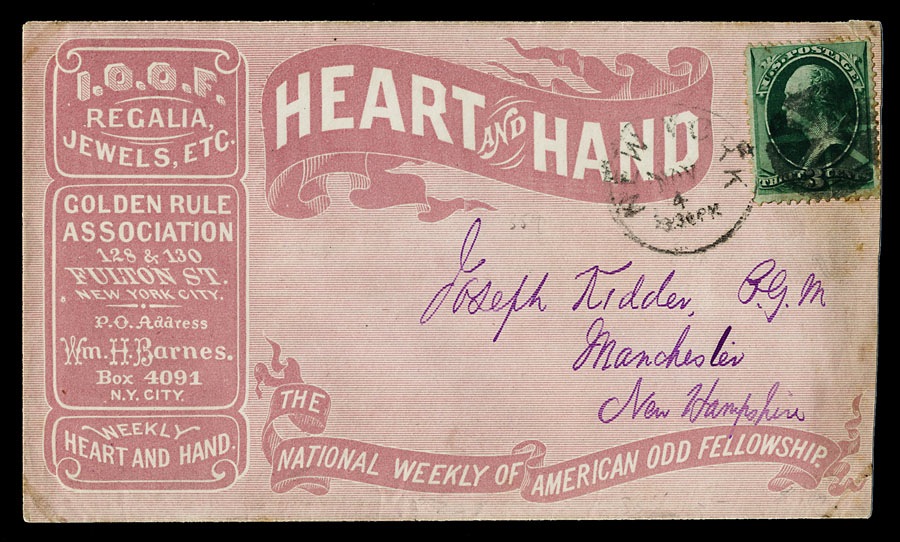 I.O.O.F.
REGALIA,
JEWELS, ETC.
GOLDEN RULE
ASSOCIATION
128 & 130
FULTON ST.
NEW YORK CITY.
P.O. Address
Wm. H. Barnes.
Box 4091
N.Y. CITY.
WEEKLY
HEART AND HAND.
HEART AND HAND
U.S. POSTAGE
THREE 3 CENTS
NEW YORK
MAY
4
Joseph Kidder, P.G.M
Manchester
New Hampshire
THE
NATIONAL WEEKLY OF AMERICAN ODD FELLOWSHIP.